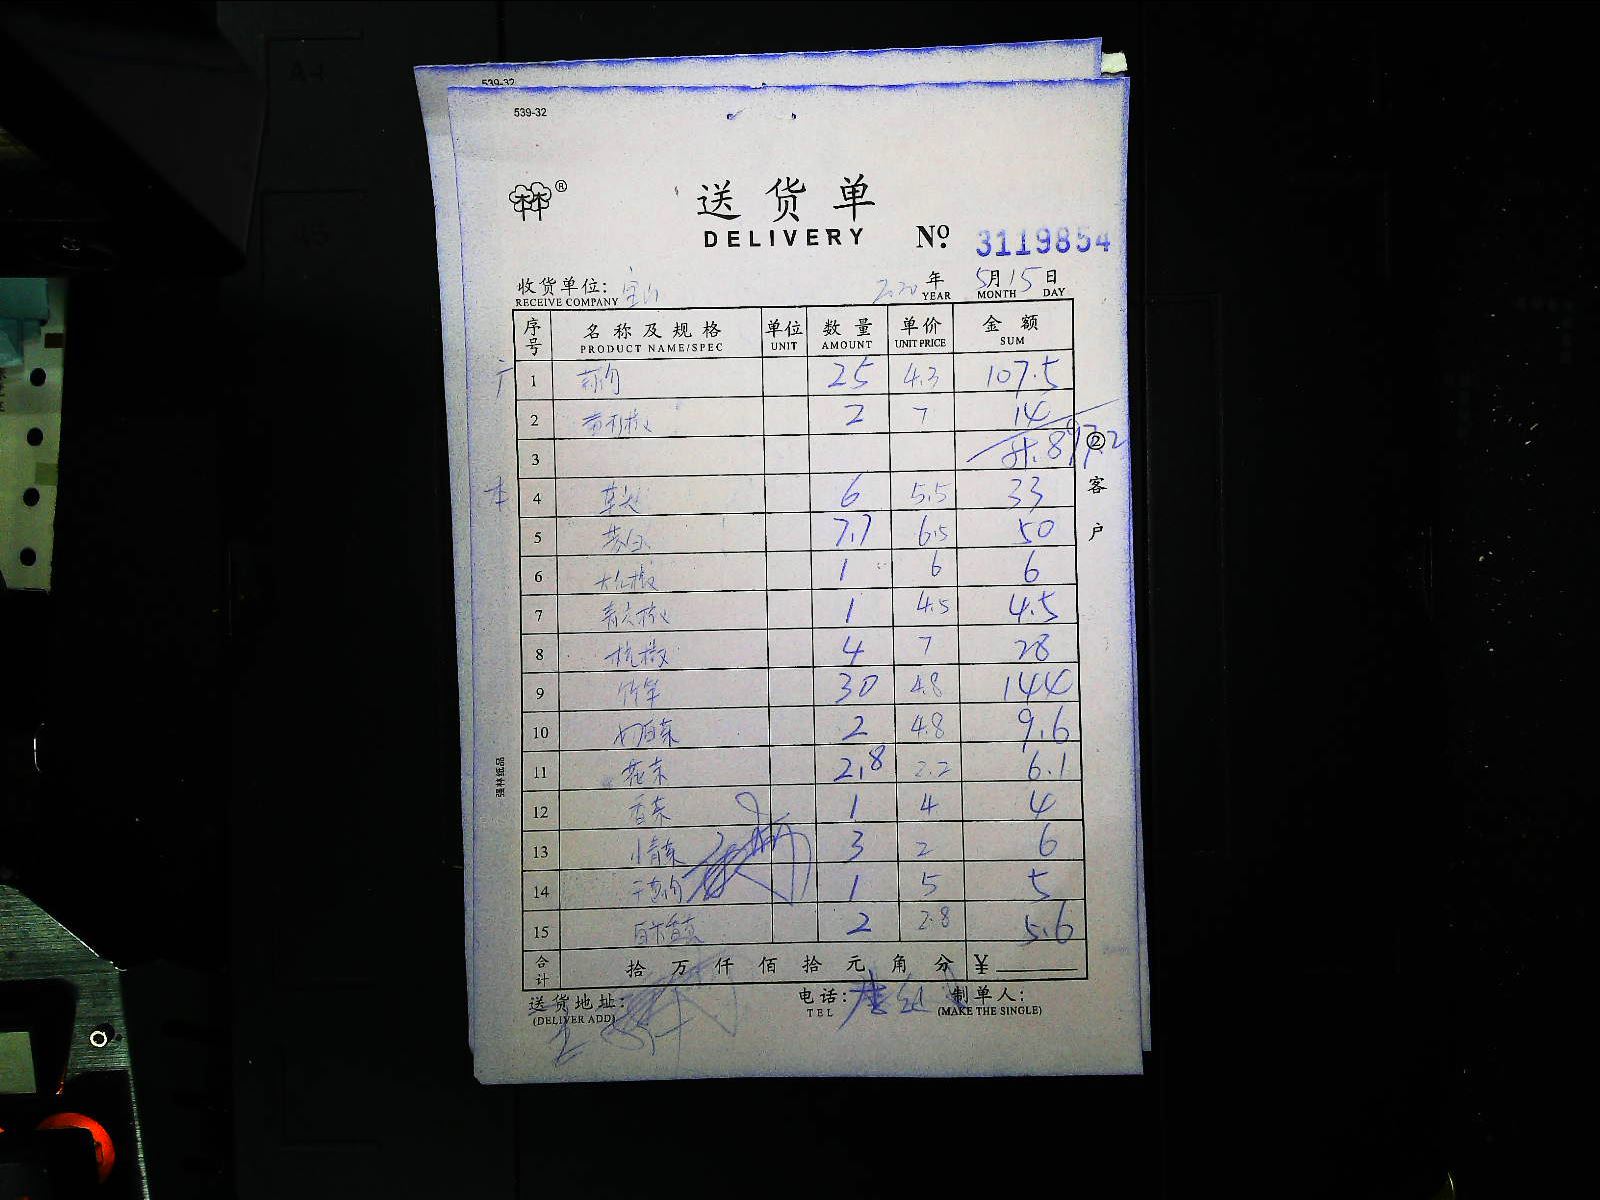 539-32
539-32
送货单
DELIVERY Nº 3119854
收货单位: 宝山 2020年 5月15日
RECEIVE COMPANY YEAR MONTH DAY
序号 名称及规格 单位 数量 单价 金额
PRODUCT NAME/SPEC UNIT AMOUNT UNIT PRICE SUM
1 25 4.3 107.5
2 黄彩椒 2 7 14
3 897.2
4 草头 6 5.5 33
5 茭白 7.7 6.5 50
6 大红椒 1 6 6
7 青尖椒 1 4.5 4.5
8 杭椒 4 7 28
9 竹笋 30 4.8 144
10 2 4.8 9.6
11 花菜 2.8 2.2 6.1
12 香菜 1 4 4
13 小青菜 3 2 6
14 1 5 5
15 2 2.8 5.6
合计 拾 万 仟 佰 拾 元 角 分 ¥
送货地址: 电话: 制单人:
(DELIVER ADD) TEL (MAKE THE SINGLE)
② 客户
强林纸品